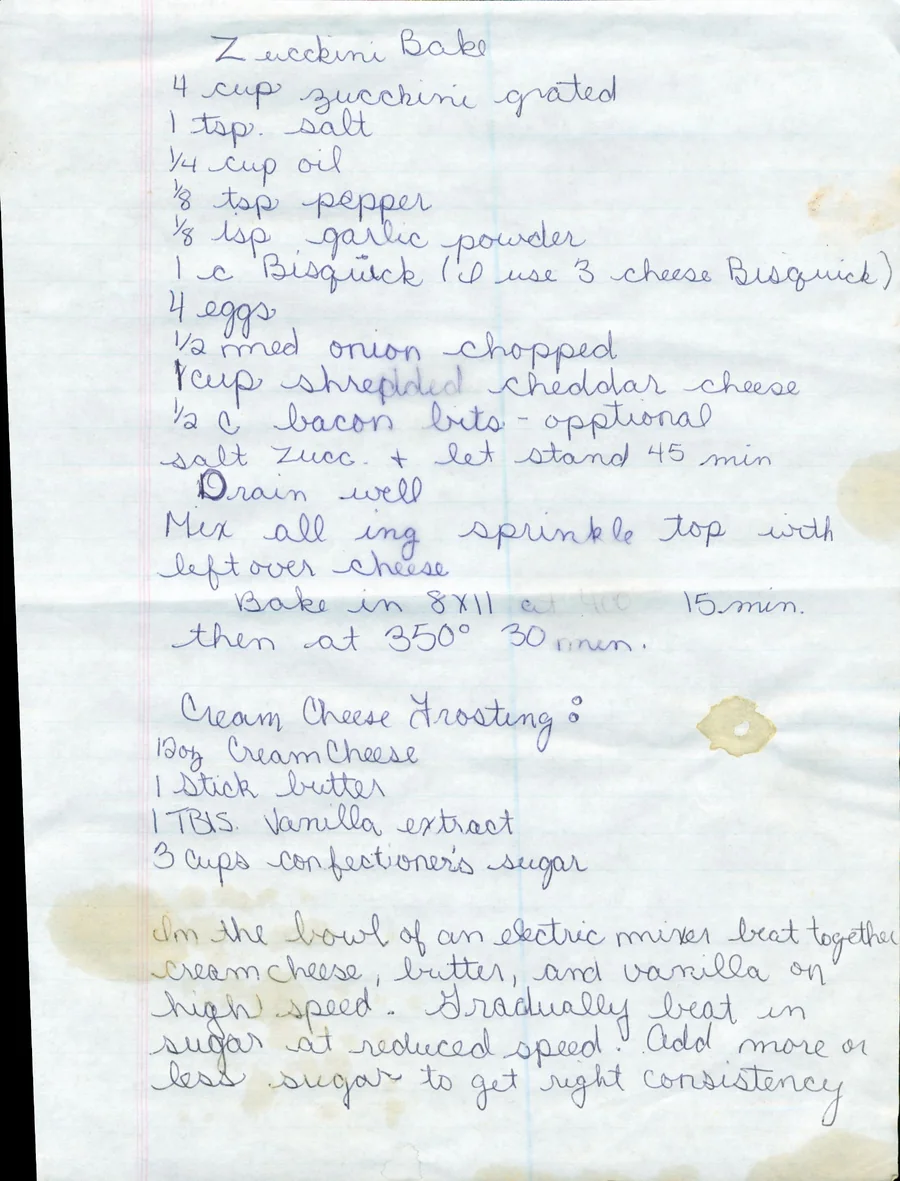 Zucckini Bake
4 cup zucchini grated
1 tsp. salt
1/4 cup oil
1/8 tsp pepper
1/8 tsp garlic powder
1 c Bisquick (I use 3 cheese Bisquick)
4 eggs
1/2 med onion chopped
1 cup shredded cheddar cheese
1/2 c bacon bits - opptional
salt zucc. + let stand 45 min
Drain well
Mix all ing sprinkle top with
left over cheese
Bake in 8x11 at 400 15 min.
then at 350° 30 min.
Cream Cheese Frosting:
12oz Cream Cheese
1 Stick butter
1 TBLS. Vanilla extract
3 cups confectioner's sugar
In the bowl of an electric mixer beat together
cream cheese, butter, and vanilla on
high speed. Gradually beat in
sugar at reduced speed. Add more or
less sugar to get right consistency